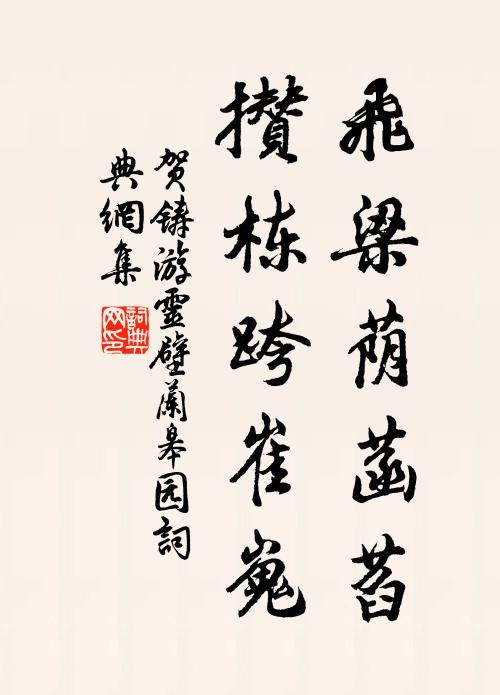 飛梁荫菡萏
攢栋跨崔嵬
贺鑄游靈壁蘭皋园詞
典網集
詞典网印